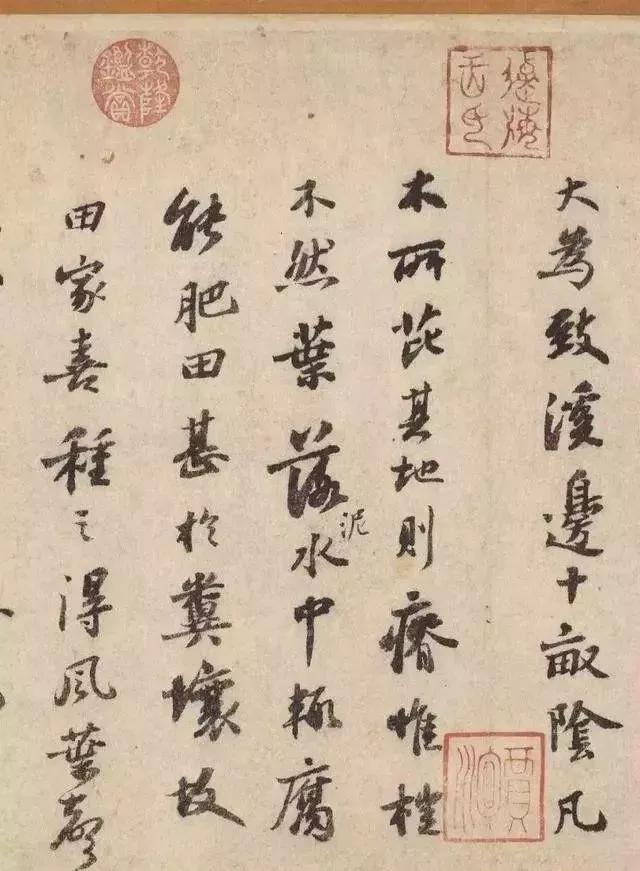 大為致溪邊十畝陰凡
木所芘其地則瘠惟榿
不然葉落泥水中輒腐
能肥田甚於糞壤故
田家喜種之得風葉聲
乾隆鑑賞